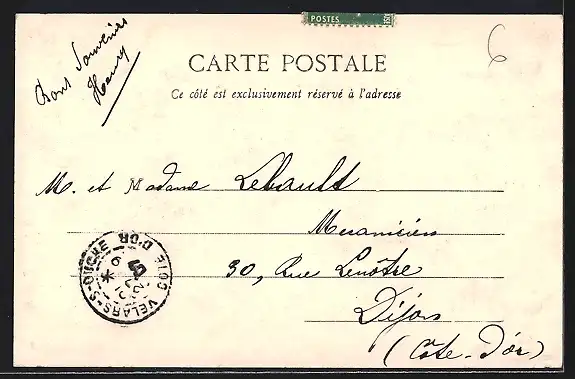 POSTES
Bons Souvenirs
Henry
6
CARTE POSTALE
Ce côté est exclusivement réservé à l'adresse
M. et Madame Lebault
Mecanicien
30, Rue Lenôtre
Dijon
(Côte-d'Or)
VELARS-S-OUCHE CÔTE D'OR